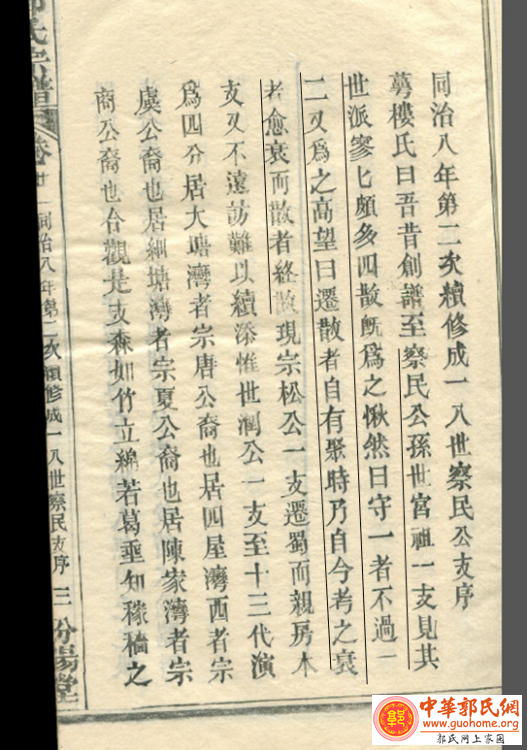 同治八年第二次續修成一八世察民公支序
蕚樓氏曰吾昔創譜至察民公孫世宮祖一支見其
世派寥匕頗多四散旣爲之愀然曰守一者不過一
二又爲之高望曰遷散者自有聚時乃自今考之衰
者愈衰而散者終散現宗松公一支遷蜀而親房木
支又不遠訪難以續添惟世潤公一支至十三代演
爲四分居大塘灣者宗唐公裔也居四屋灣西者宗
虞公裔也居綱塘灣者宗夏公裔也居陳家灣者宗
商公裔也合觀是支森如竹立綿若葛垂知稼穡之
氏宗譜 卷廿一 同治八年第二次續修成一八世察民支序 三 汾陽堂
中華郭氏網
www.guohome.org
郭氏网上家园